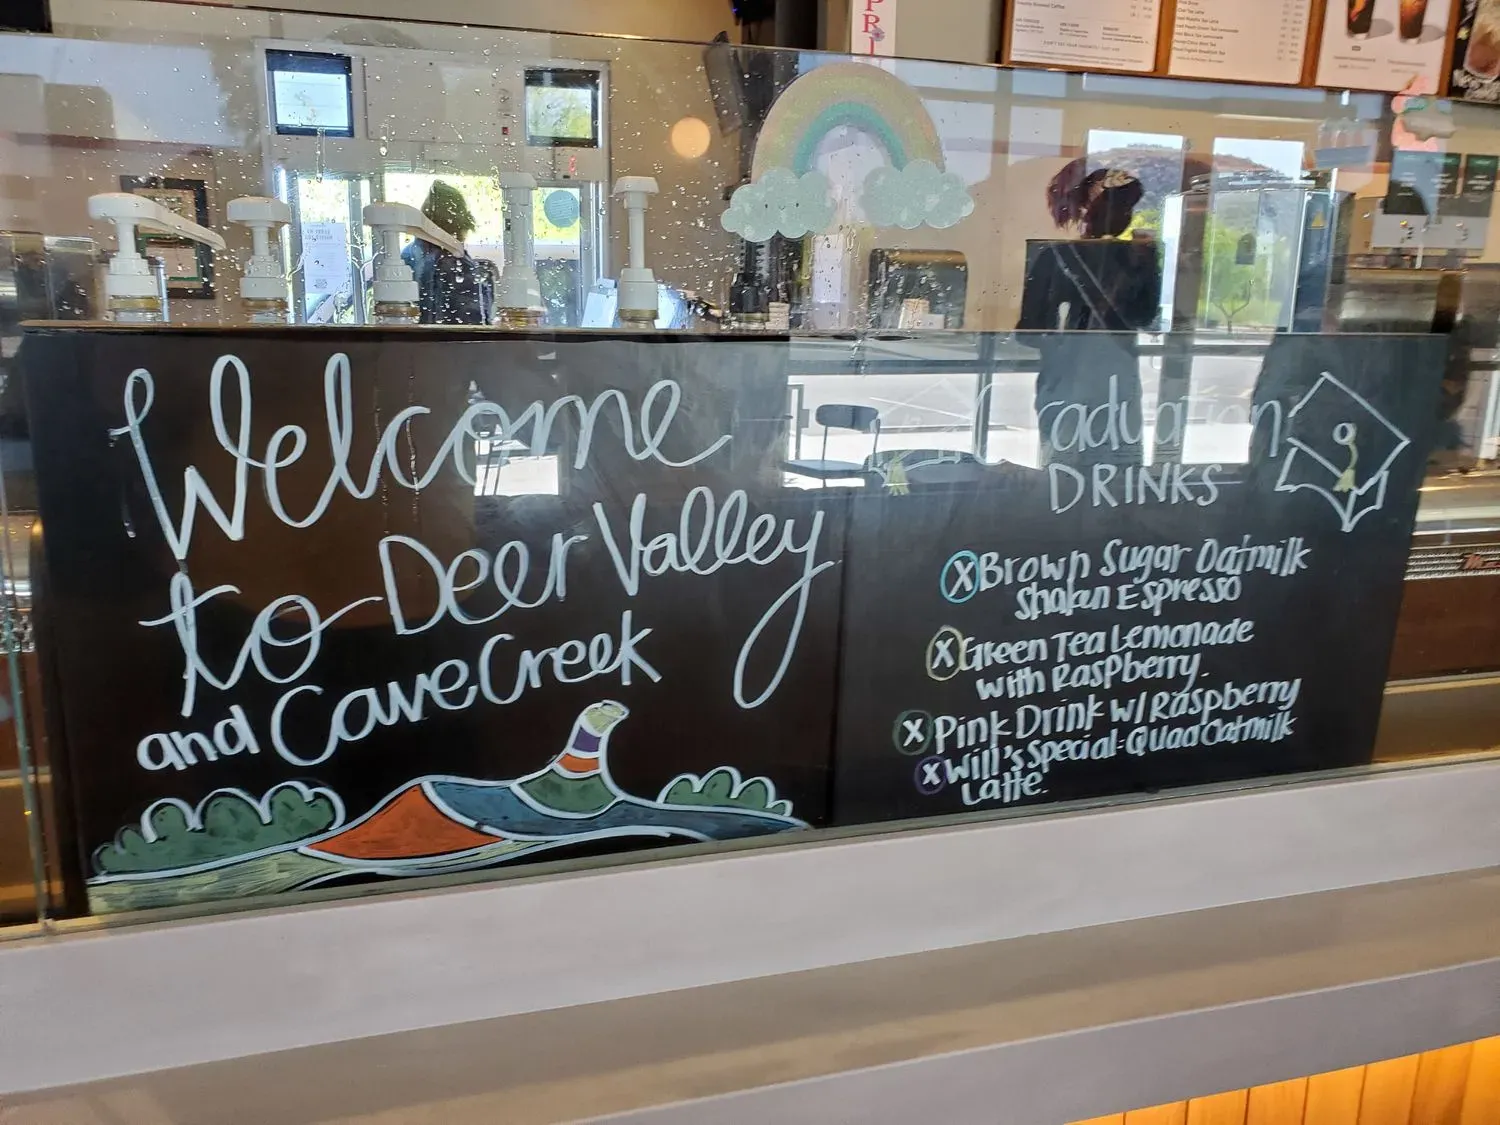 Welcome
to Deer Valley
and Cave Creek
Graduation
DRINKS
X Brown Sugar Oatmilk
Shaken Espresso
X Green Tea Lemonade
with Raspberry.
X Pink Drink W/ Raspberry
X Will's Special: Quad Oatmilk
Latte.